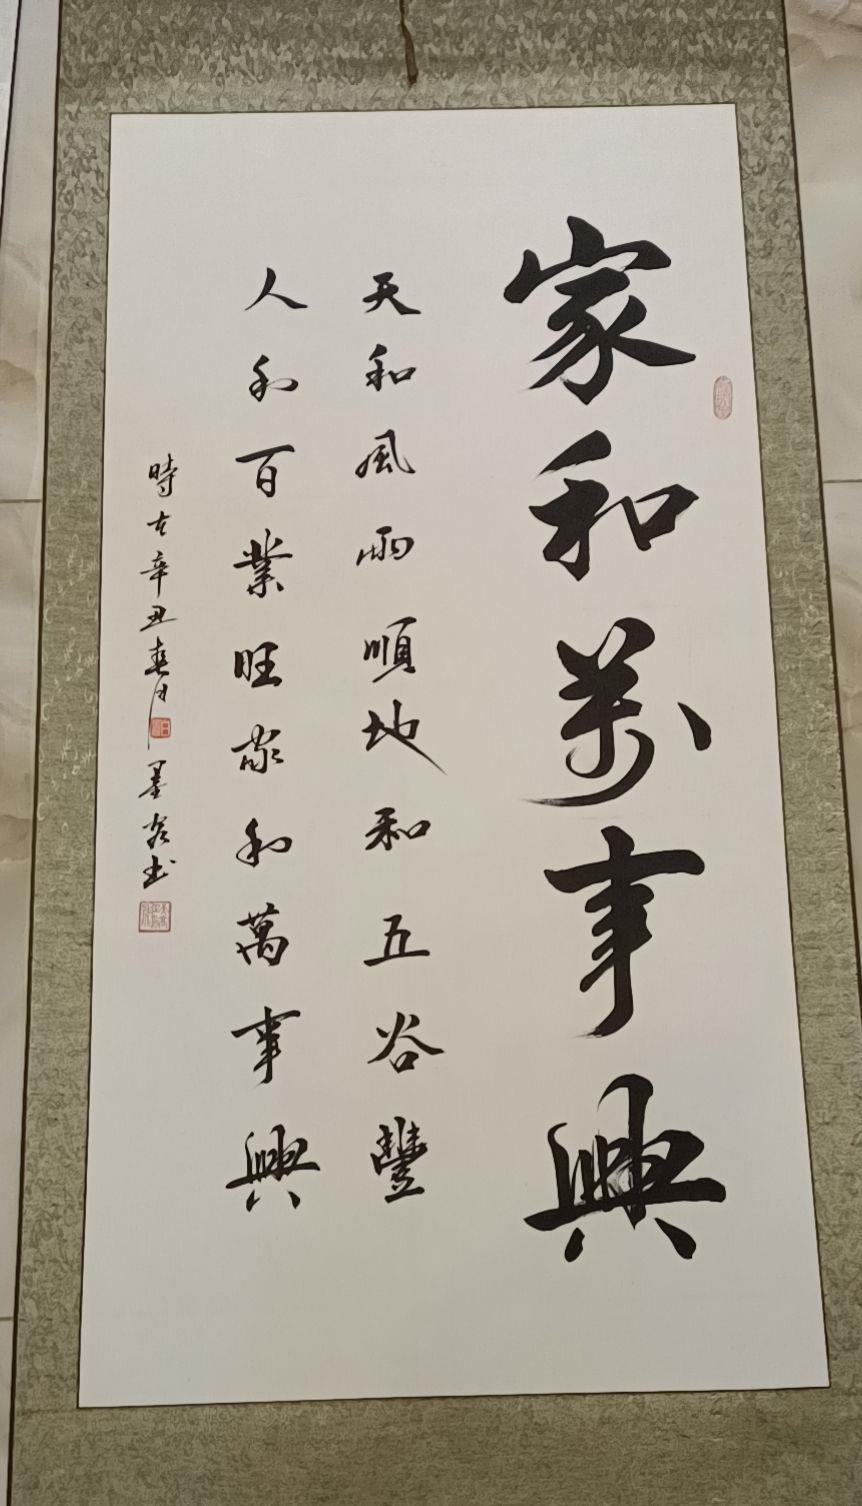 家和萬事興
天和風雨順地和五谷豐
人和百業旺家和萬事興
時在辛丑春月墨客书